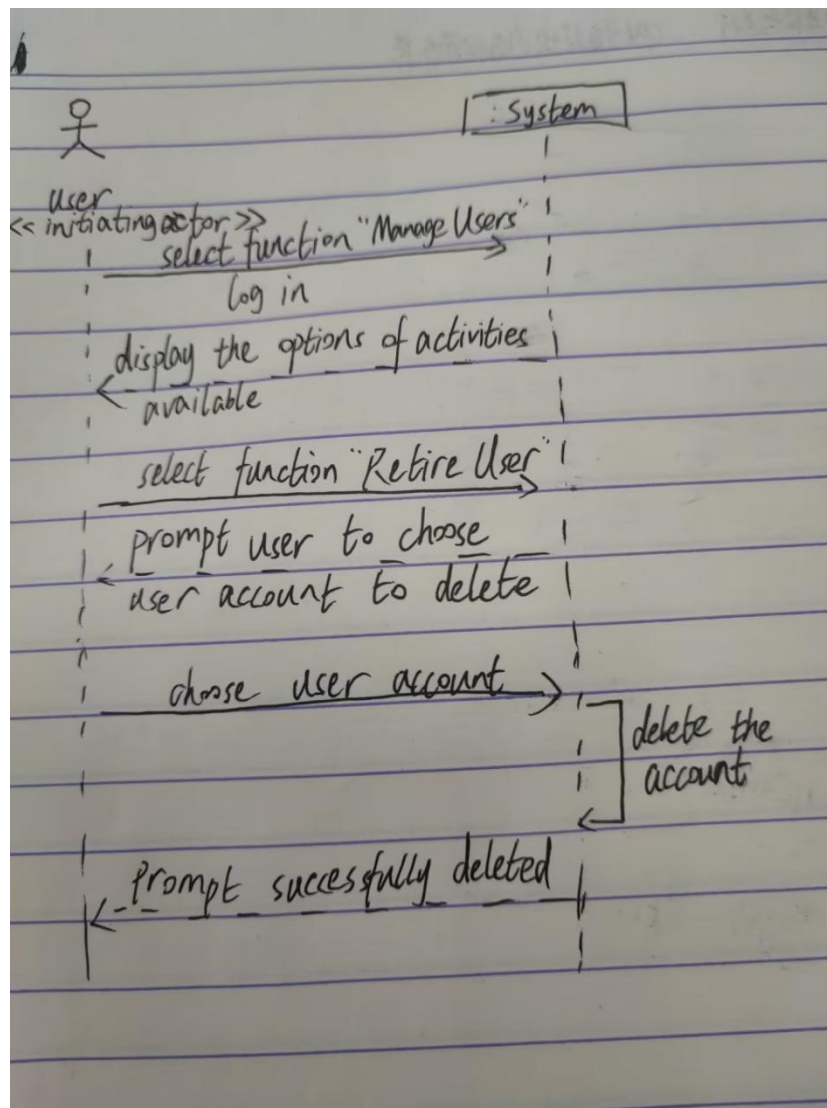 : System
user
<< initiating actor >>
select function "Manage Users"
log in
display the options of activities
available
select function "Retire User"
prompt user to choose
user account to delete
choose user account
delete the
account
Prompt successfully deleted